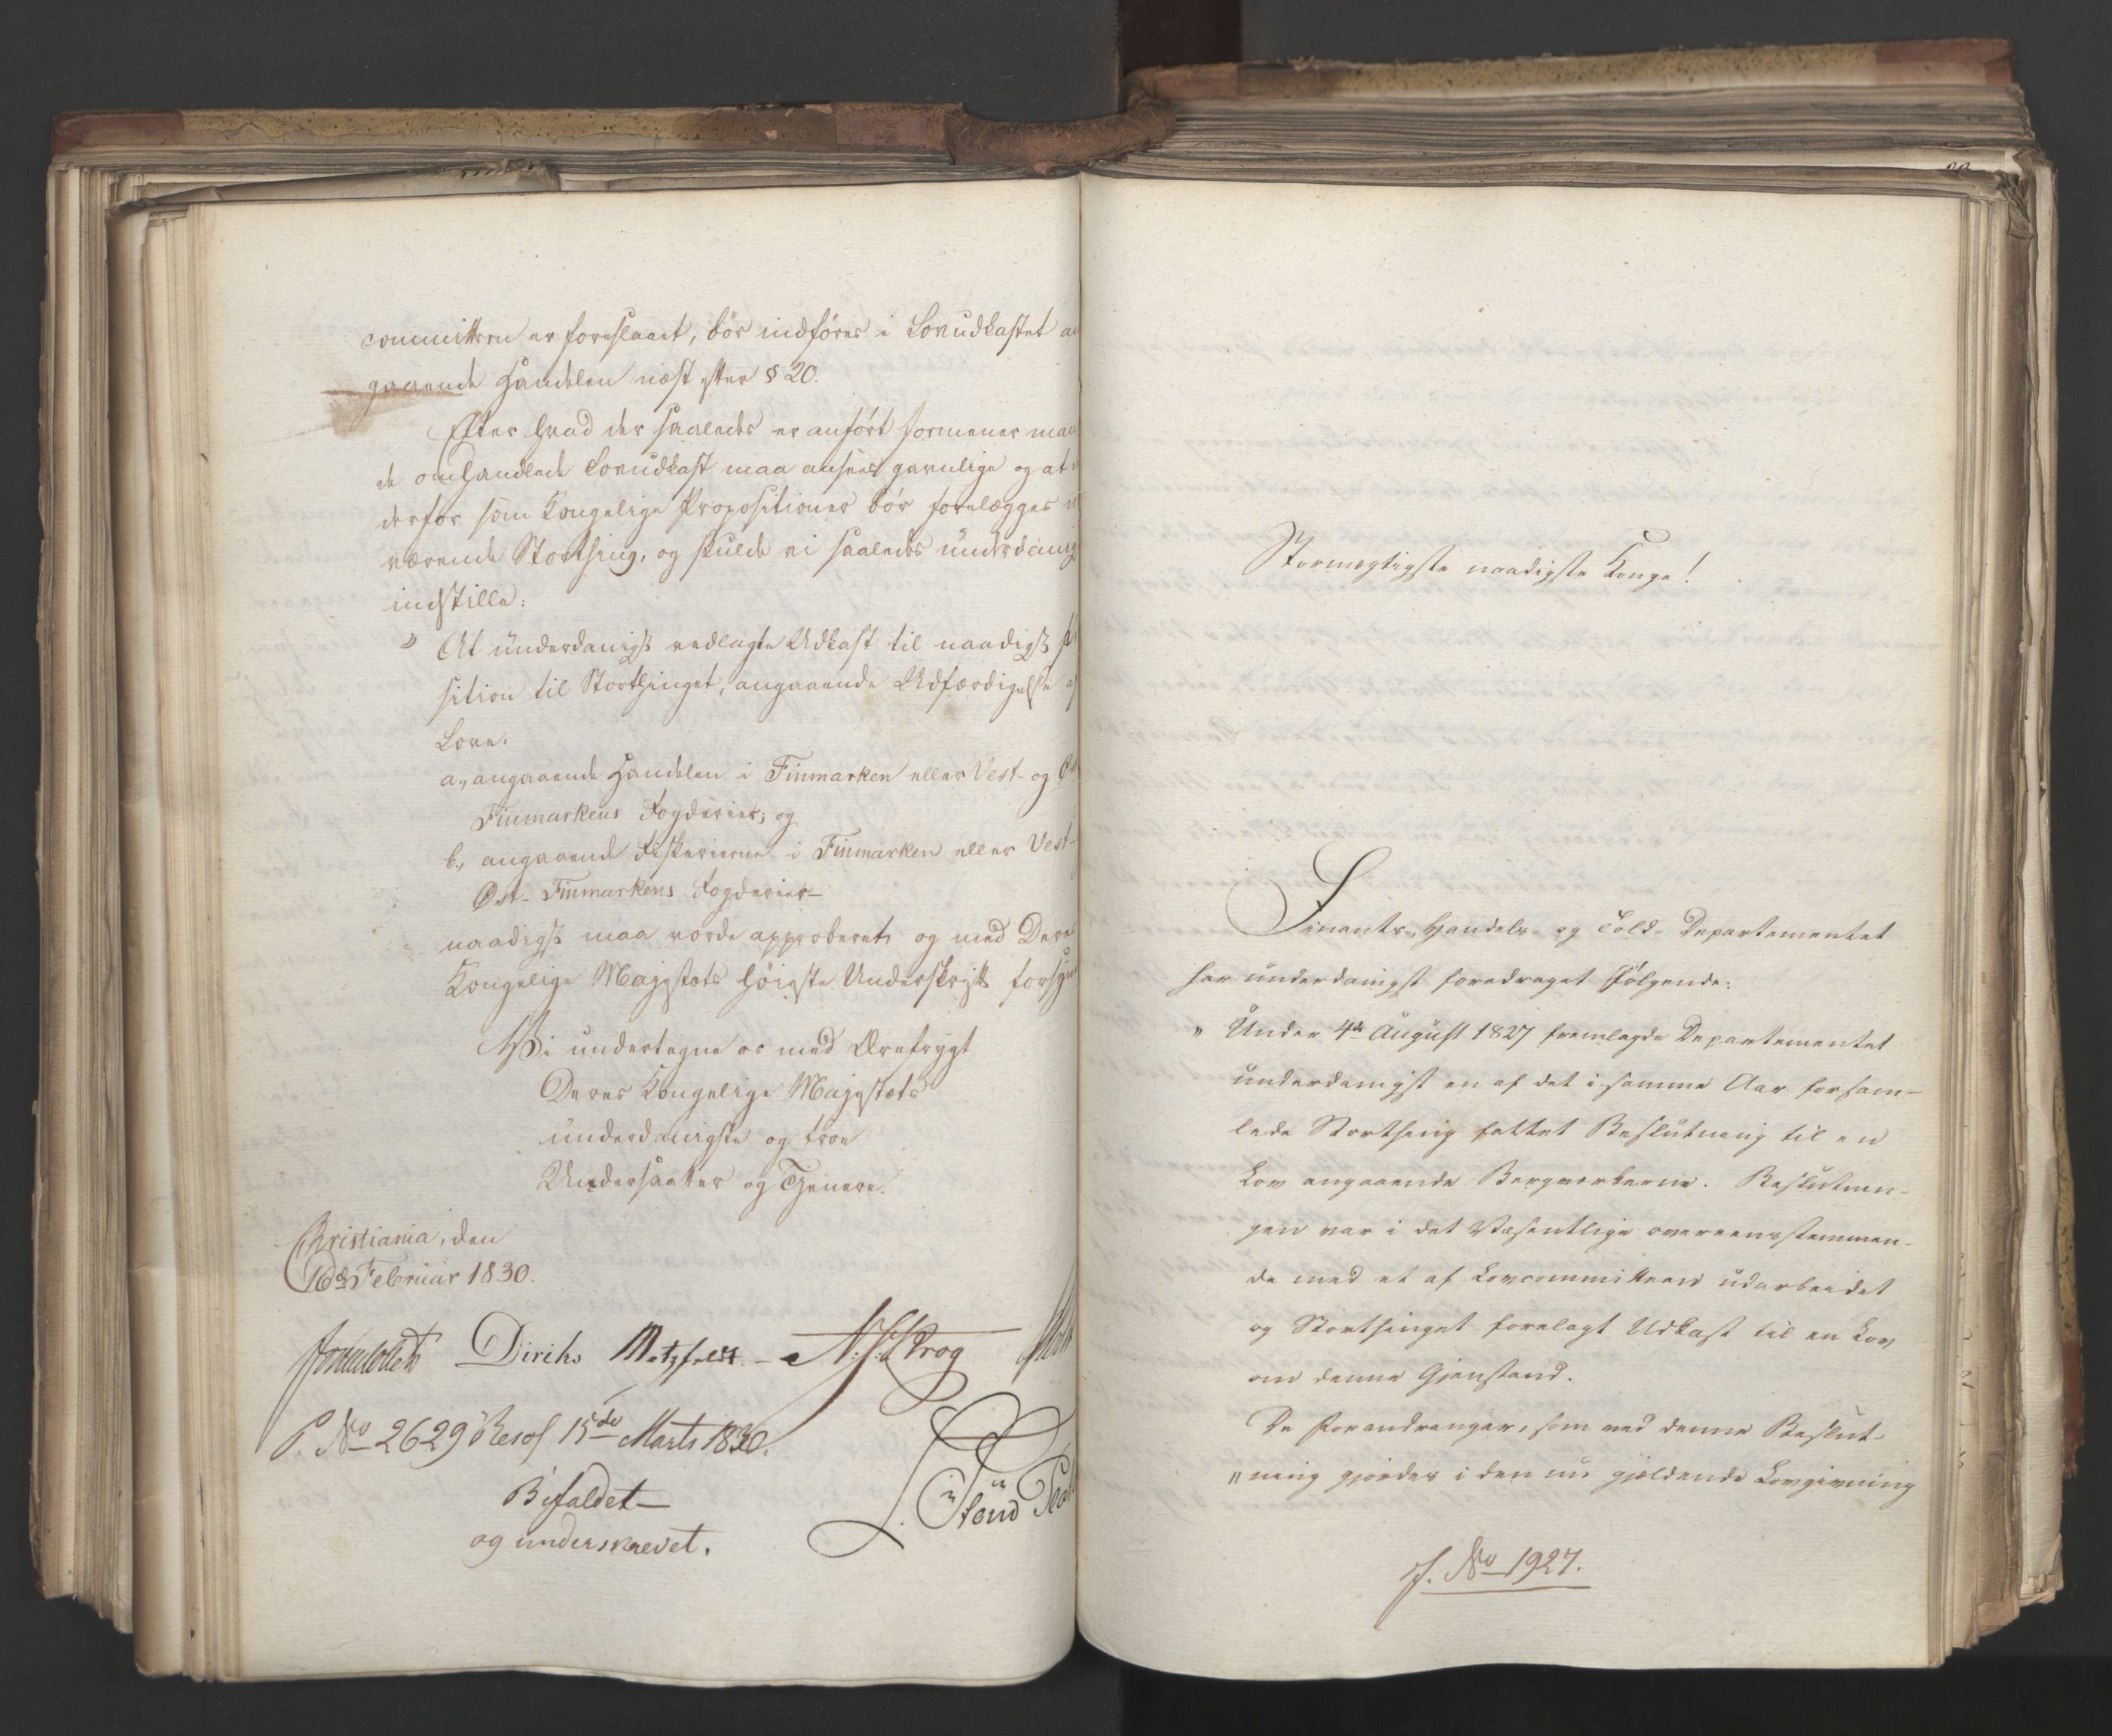 committeen er foreslaaet, bör indföres i Lovudkastet an
gaaende Handelen næst efter § 20.
Efter hvad der saaledes er anført formener man
de omhandlede Lovudkast maa ansees gavnlige og at
derfor som Kongelige Propositioner bör forelægges
værende Storthing, og skulde vi saaledes underdanig
indstille:
" At underdanigst vedlagte Udkast til naadigst
sition til Storthinget, angaaende Udfærdigelse af
Love:
a., angaaende Handelen i Finmarken eller Vest- og Øst
Finmarkens Fogderier; og
b., angaaende Fiskerierne i Finmarken eller Vest-
Øst- Finmarkens Fogderier-
naadigst maa vorde approberet, og med Deres
Kongelige Majestæts høieste Underskrift forsyn
Vi undertegne os med Ærefrygt
Deres Kongelige Majestæts
underdanigste og troe
Undersaatter og Tjenere.
Christiania, den
16de Februar 1830.
Diriks Motzfeldt. Krog
P. No 2629 Resol 15de Marts 1830.
Bifaldet-
og underskrevet.
Stormægtigste naadigste Konge!
Finants-, Handels- og Told- Departementet
har underdanigst foredraget Følgende:
" Under 4de August 1827 fremlagde Departementet
underdanigst en af det i samme Aar forsam-
lede Storthing fattet Beslutning til en
Lov angaaende Bergværkerne. Beslutnin-
gen var i det Væsentlige overeensstemmen-
de med et af Lovcommitteen udarbeidet
og Storthinget forelagt Udkast til en Lov
om denne Gjenstand.
De Forandringer, som ved denne Beslut-
" ning gjordes i den nu gjældende Lovgivning
J. No 1927.